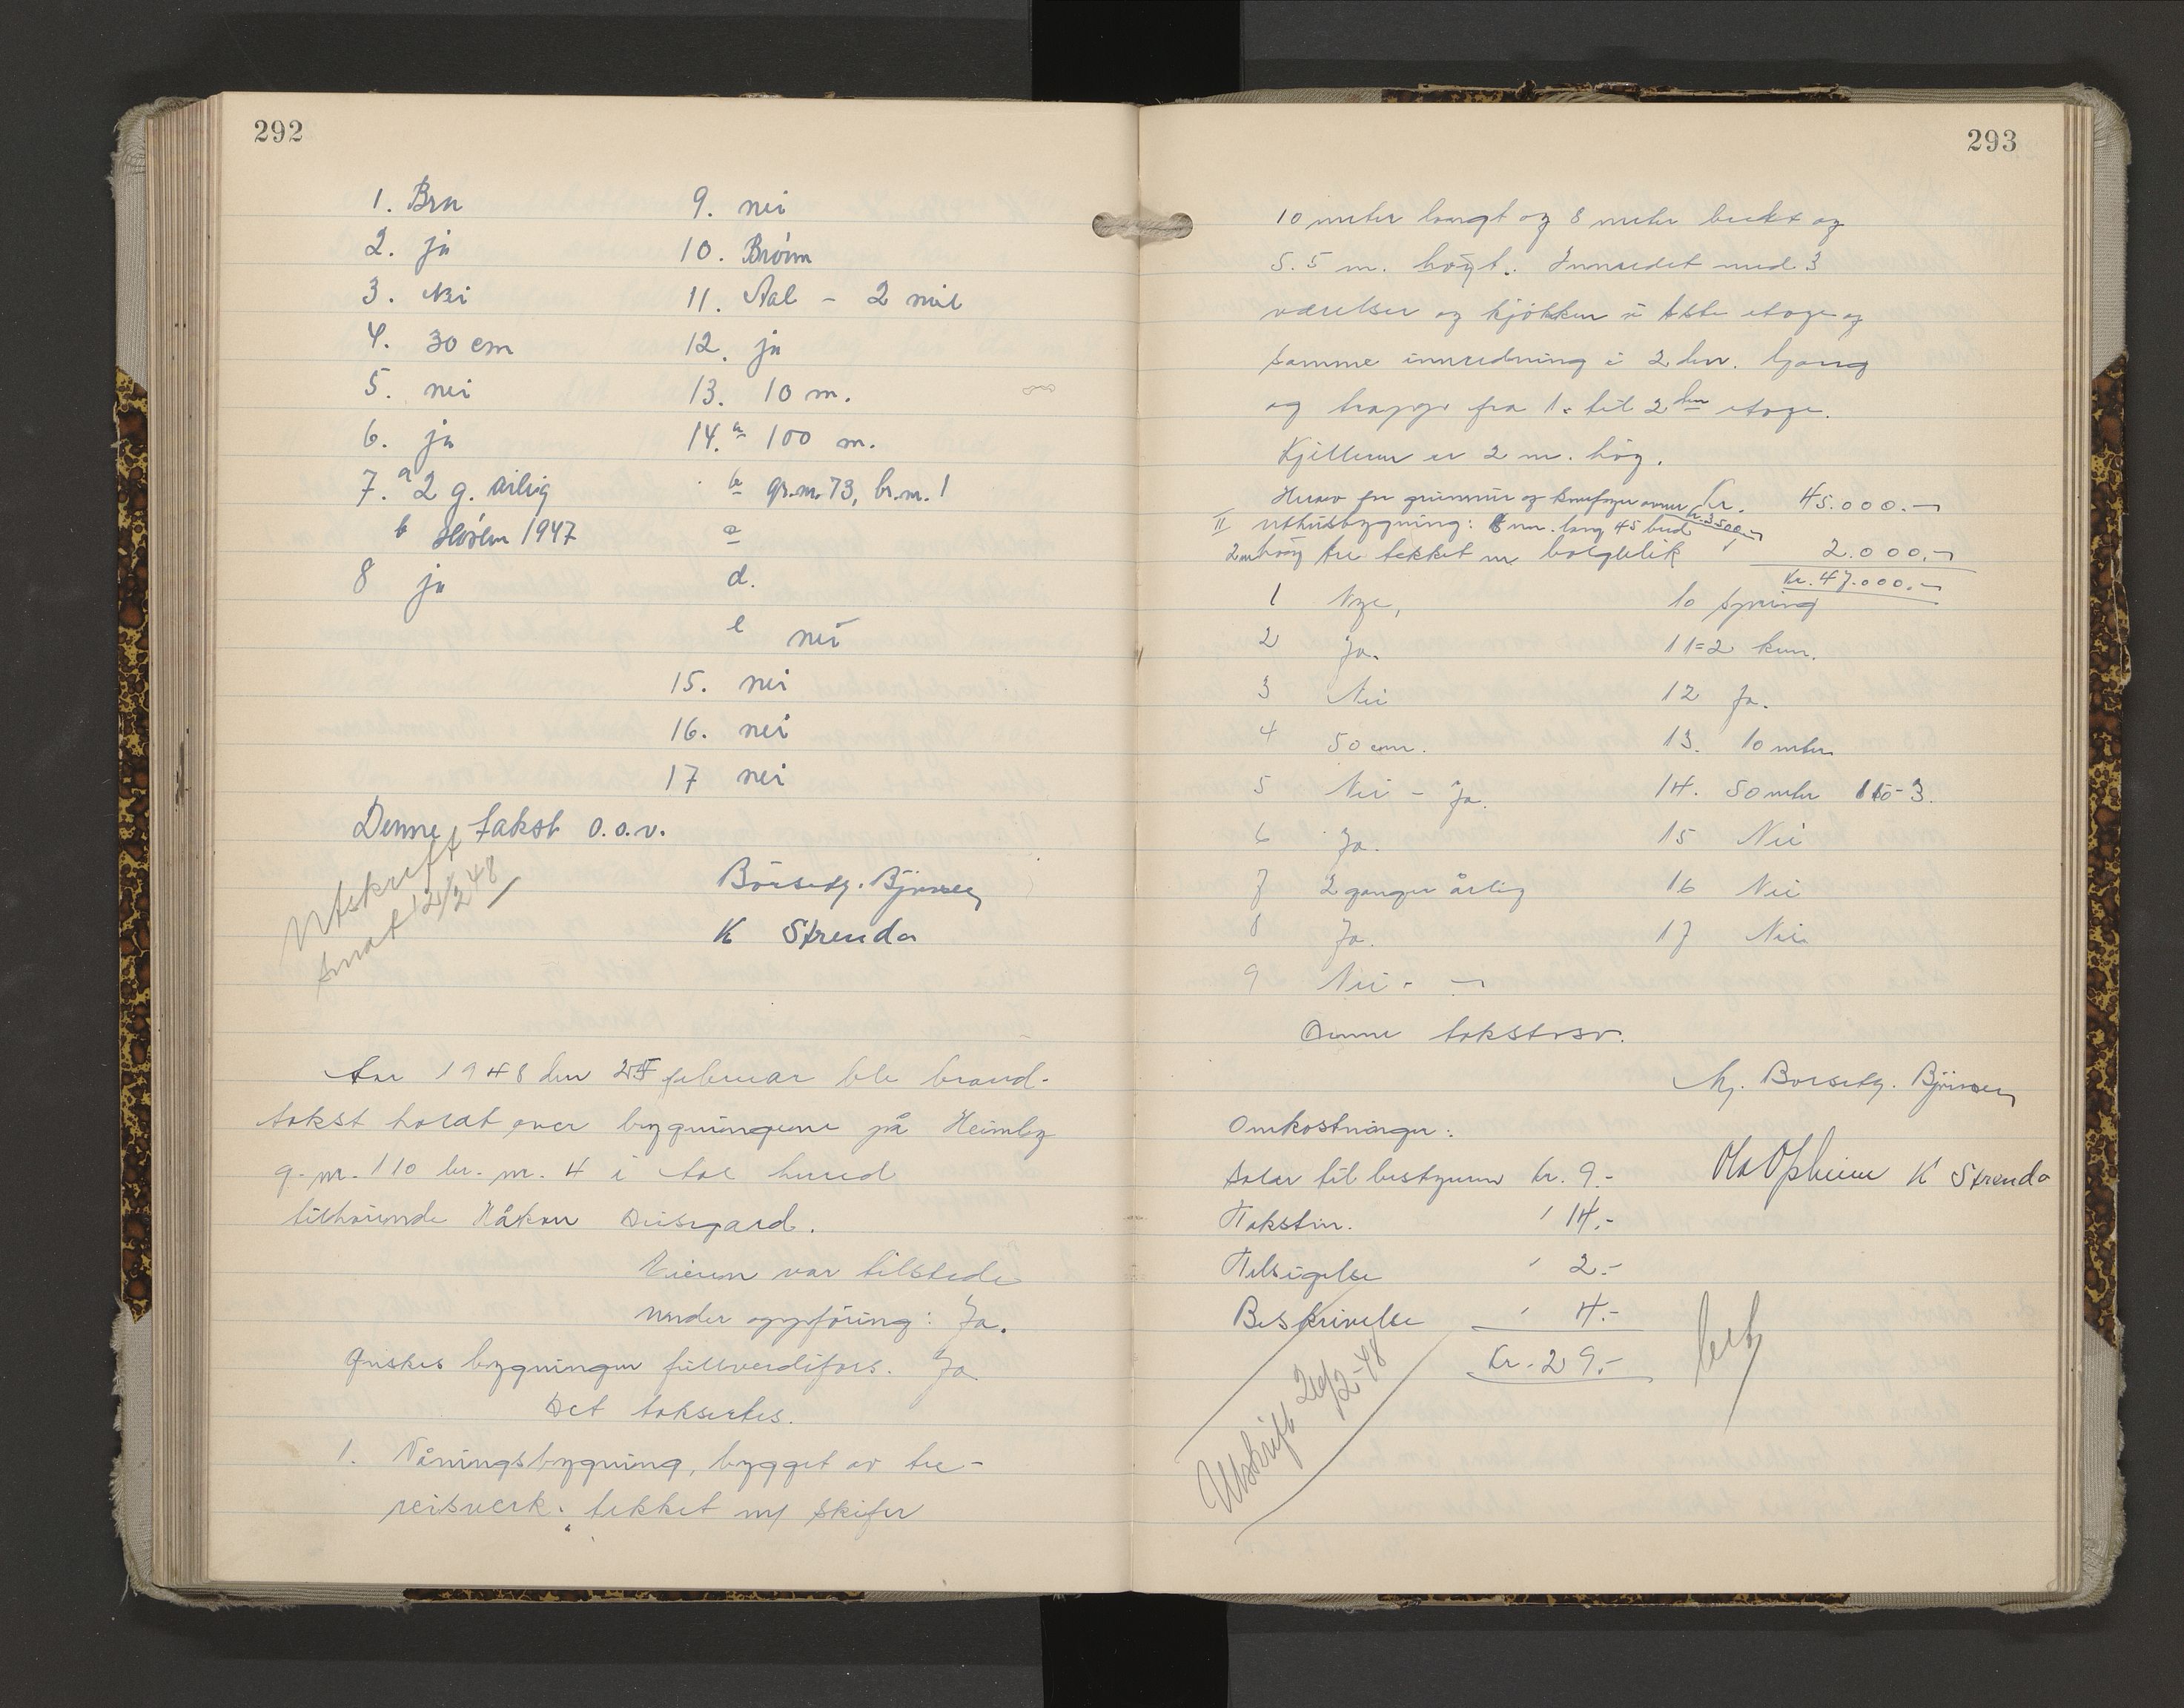 292
1. Bra
2. ja
3. Nei
4. 30 cm
5. nei
6. ja
7. a 2 g. årlig
b Hösten 1947
8 ja
9. nei
10. Brönn
11. Aal - 2 mil
12. ja
13. 10 m.
14. a 100 m.
b gr.nr. 73, br.nr. 1
c
d.
e nei
15. nei
16. nei
17 nei
Denne takst o.o.v.
Utskrift
sendt 12/2 48
Börseth. Björnsen
K Strenda
Aar 1948 den 25 februar ble brand-
takst holdt over bygningene på Heimly
g. nr. 110 br. nr. 4 i Aal herred
tilhörende Håkon
Eieren var tilstede
under oppföring: Ja.
Önskes bygningen fullverdifors. Ja
Det taksertes.
1. Våningsbygning, bygget av tre-
reisverk. tekket m/ skifer
293
10 meter langt og 8 meter bredt og
5.5 m. högt. Innredet med 3
værelser og kjökken i 1ste etage og
samme innredning i 2 den. Gang
og trapp fra 1. til 2 den etage.
Kjelleren er 2 m. höy.
Herav for grunnmur og kr. 3500,- Kr. 45.000.-
II Uthusbygning: 6 m. lang 4 5 bred
2 m höy tre tekket m bölgeblik 2.000.-
Kr. 47.000.-
1 Nye,
2 Ja.
3 Nei
4 50 cm.
5 Nei - Ja.
6 Ja.
7 2 ganger årlig
8 Ja.
9 Nei -
10 spring
11 = 2 km.
12 Ja.
13. 10 meter
14. 50 meter 110-3.
15 Nei
16 Nei
17 Nei
Denne takst osv.
Borseth. Björnsen
Omkostninger:
Salær til bestyreren kr. 9.-
Ola Opheim K Strenda
Takstm. " 14.-
Tilsigelse " 2.-
Beskrivelse " 4.-
Kr. 29.-
Utskrift 26/2-48